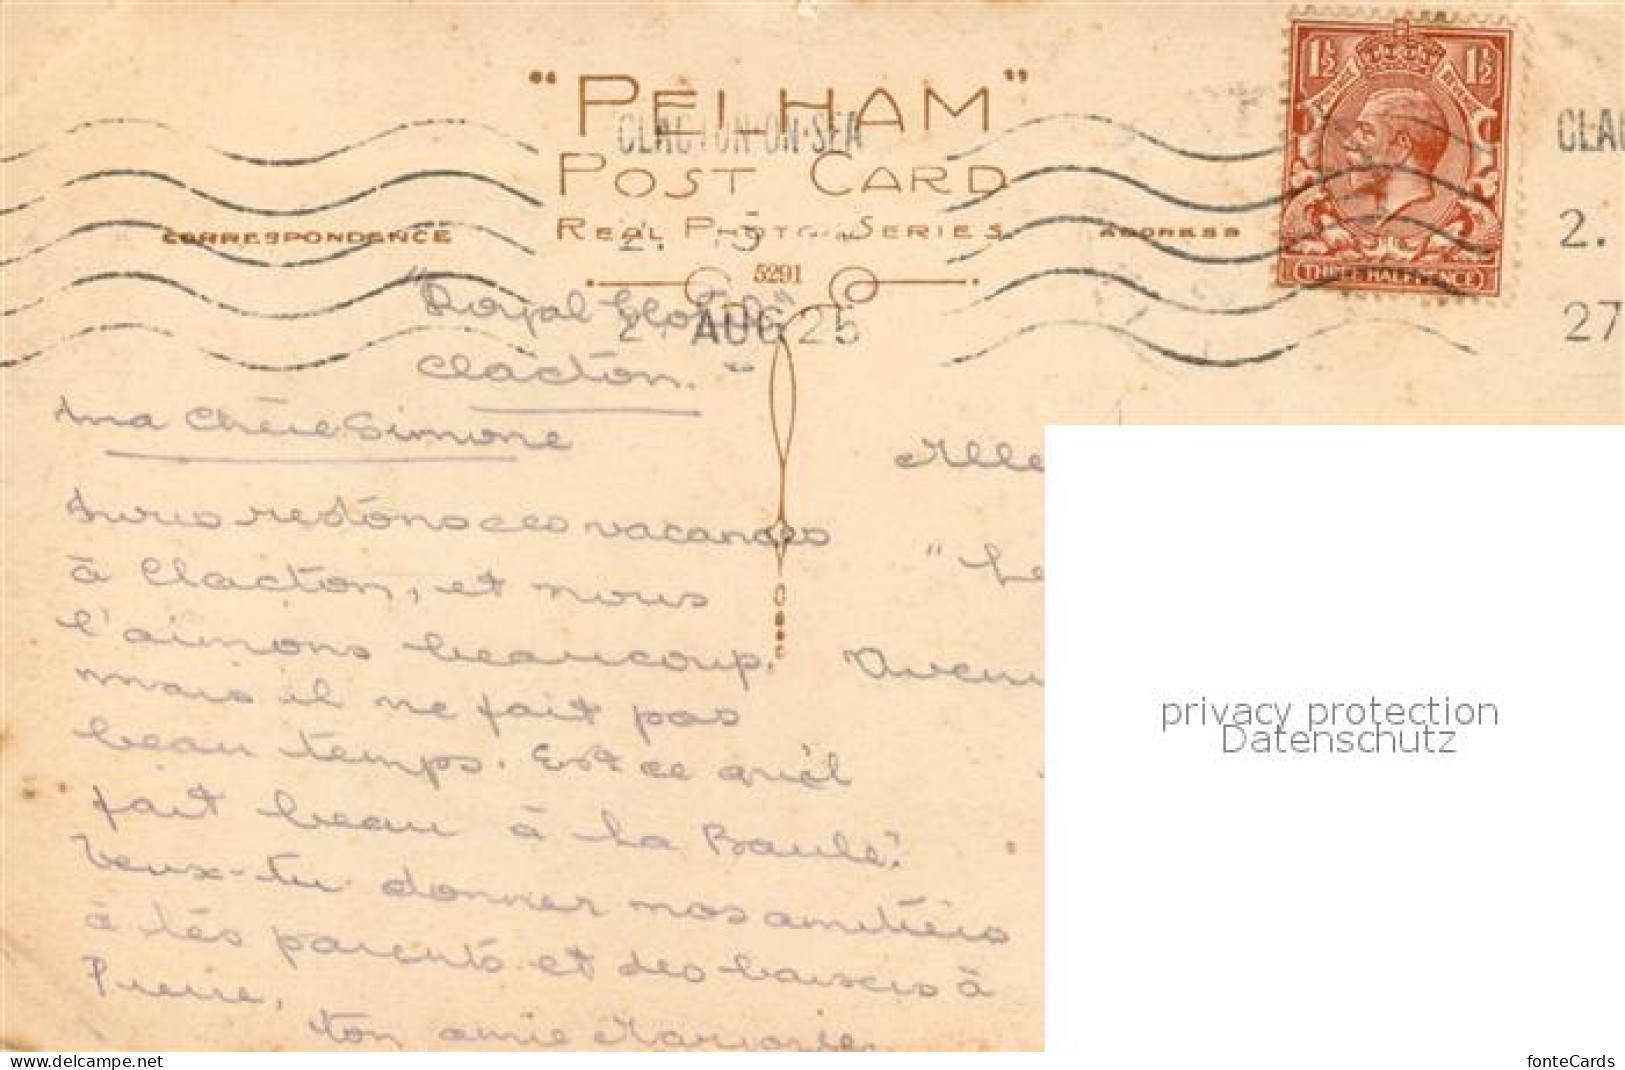 "PELHAM"
CLACTON-ON-SEA
POST CARD
REAL PHOTO SERIES
CORRESPONDENCE
ADDRESS
5291
2. 5
27 AUG 25
1½ 1½
THREE HALFPENCE
CLAC
2.
27
"Royal Hotel"
Clacton."
ma Chère Simone
restons ces vacances
à Clacton, et nous
l'aimons beaucoup.
mais il ne fait pas
beau temps. Est ce qu'il
fait beau à La Baule?
Veux-tu donner nos amitiéis
à tés parents et des baisers à
Pierre,
ton amie Marjorie.
Mlle
"Le
Avenu
privacy protection
Datenschutz
www.delcampe.net
fonteCards